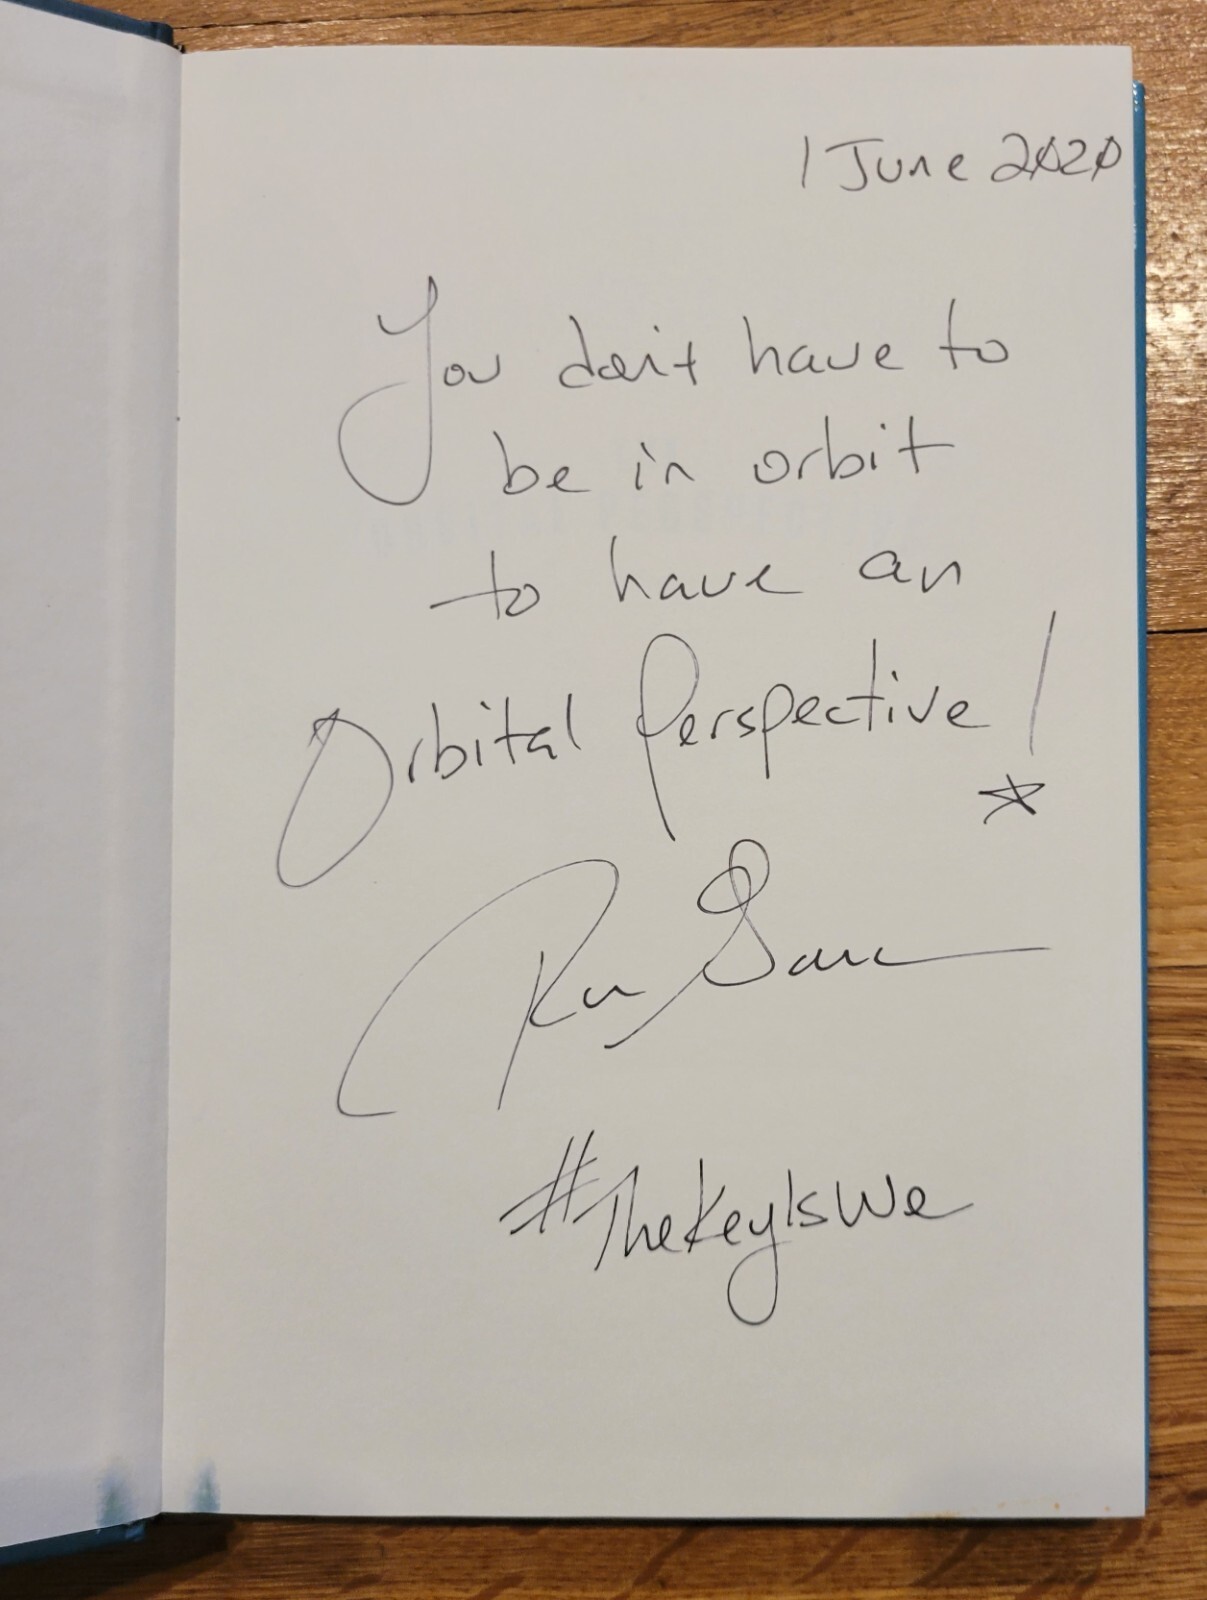 1 June 2020
You don't have to
be in orbit
to have an
Orbital Perspective!
Ron Garan
#TheKeyIsWe